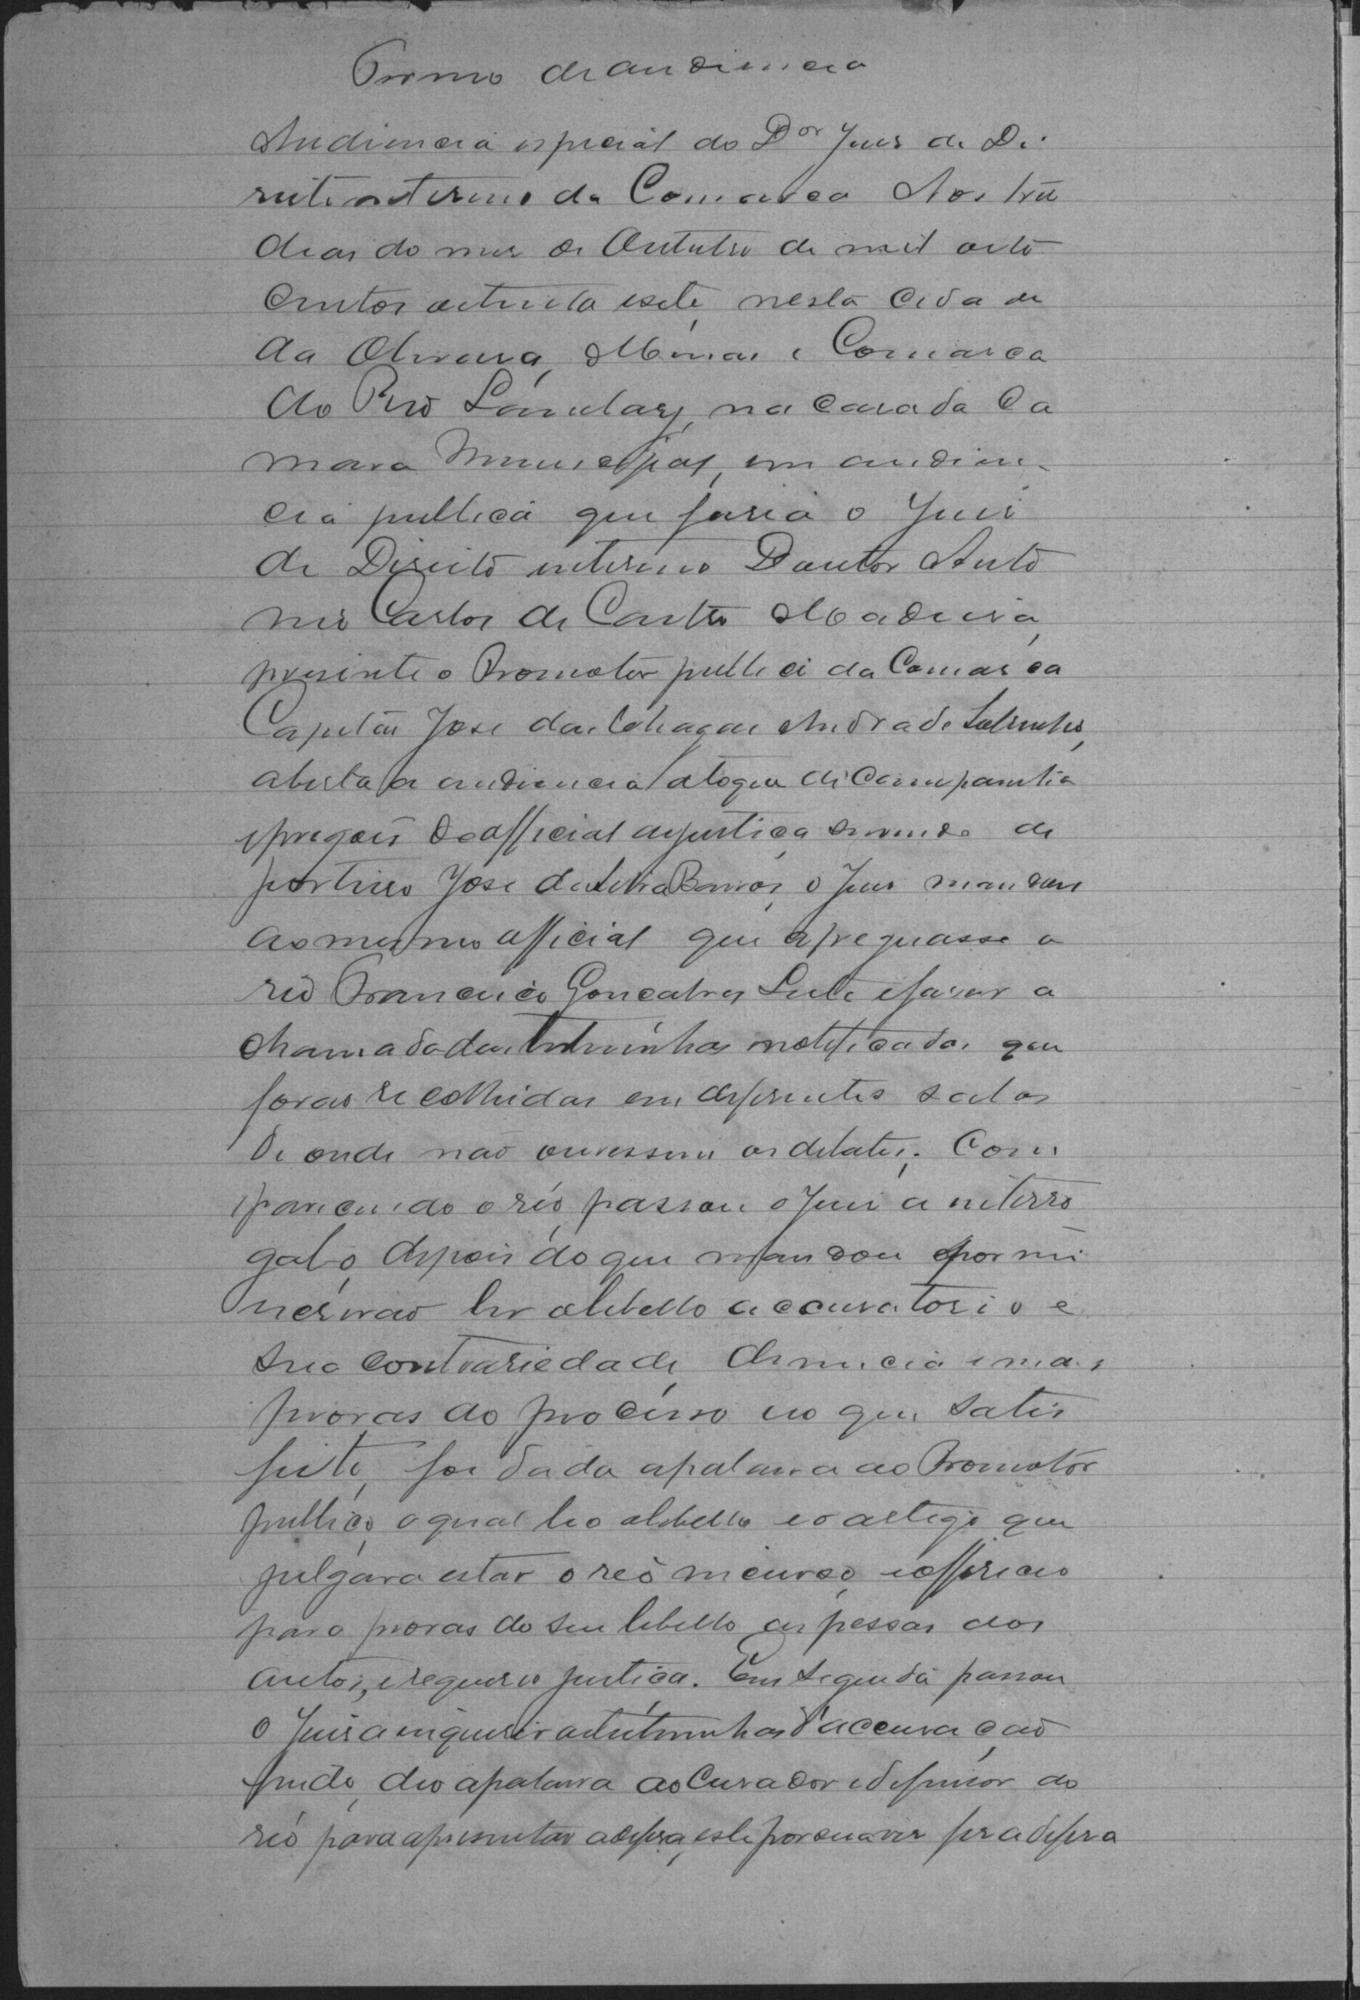 Termo de audiencia
Audiencia especial do Dor Juis de Di
reito interino da Comarca Aos trei
dias do mes de Outubro de mil oito
centos oitenta esete, nesta cidade
da Oliveira, Minas e Comarca
do Rio Lambary, na casa da Ca
mara Municipal, em audien
cia publica que fasia o Juis
de Direito interino Doutor Anto
nio Carlos de Castro Madeira,
presente o Promotor publico da Comarca
Capitão José das Chagas Andrade Sobrinho,
aberta a audiencia a toque de Campainha
epregão do official de justiça servindo de
porteiro José da Silva Barros, o Juis mandou
ao mesmo official que apregoasse o
réo Francisco Gonçalves Leite efaser a
chamada das testiminhas notificadas que
forão recolhidas em differentes salas
de onde não ouvessem os debates. Com
parecendo o réo, passou o Juis a interro
gal-o, depois do que mandou por mi
nescrivão ler o libello accusatorio e
sua contrariedade, denuncia emais
provas do processo eo que satis
feito, foi dada apalavra ao Promotor
publico, oqual leo olibello eo artigo que
julgava estar o réo incurso, eoffereceo
para provas do seu libello as pessas dos
autos, erequereo justiça. Em seguida passou
o Juis a inquerir as testiminhas d'accusação
findo, deo apalavra ao Curador edefensor do
réo para apresentar a defesa, este por sua ves fes a defesa